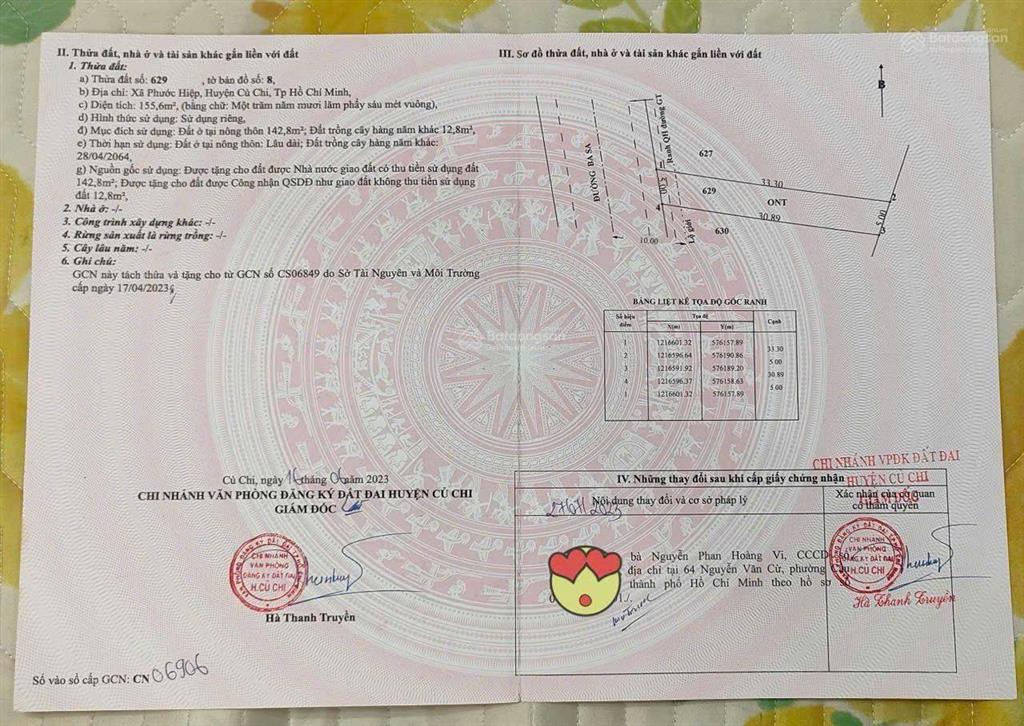 II. Thửa đất, nhà ở và tài sản khác gắn liền với đất
1. Thửa đất:
a) Thửa đất số: 629 , tờ bản đồ số: 8,
b) Địa chỉ: Xã Phước Hiệp, Huyện Củ Chi, Tp Hồ Chí Minh,
c) Diện tích: 155,6m², (bằng chữ: Một trăm năm mươi lăm phẩy sáu mét vuông),
d) Hình thức sử dụng: Sử dụng riêng,
đ) Mục đích sử dụng: Đất ở tại nông thôn 142,8m²; Đất trồng cây hàng năm khác 12,8m²,
e) Thời hạn sử dụng: Đất ở tại nông thôn: Lâu dài; Đất trồng cây hàng năm khác:
28/04/2064,
g) Nguồn gốc sử dụng: Được tặng cho đất được Nhà nước giao đất có thu tiền sử dụng đất
142,8m²; Được tặng cho đất được Công nhận QSDĐ như giao đất không thu tiền sử dụng
đất 12,8m²,
2. Nhà ở: -/-
3. Công trình xây dựng khác: -/-
4. Rừng sản xuất là rừng trồng: -/-
5. Cây lâu năm: -/-
6. Ghi chú:
GCN này tách thửa và tặng cho từ GCN số CS06849 do Sở Tài Nguyên và Môi Trường
cấp ngày 17/04/2023
Củ Chi, ngày 16 tháng 06 năm 2023
CHI NHÁNH VĂN PHÒNG ĐĂNG KÝ ĐẤT ĐAI HUYỆN CỦ CHI
GIÁM ĐỐC
CHI NHÁNH
VĂN PHÒNG
ĐĂNG KÝ ĐẤT ĐAI
H.CỦ CHI
Hà Thanh Truyền
Số vào sổ cấp GCN: CN 06906
III. Sơ đồ thửa đất, nhà ở và tài sản khác gắn liền với đất
Batdongsan
B
ĐƯỜNG BA SA
Ranh QH đường GT
Lộ giới
627
629
ONT
630
33.30
30.89
5.00
5.00
10.00
2
3
4
BẢNG LIỆT KÊ TỌA ĐỘ GÓC RANH
Số hiệu điểm Tọa độ Cạnh
X(m) Y(m)
1 1216601.32 576157.89
33.30
2 1216596.64 576190.86
5.00
3 1216591.92 576189.20
30.89
4 1216596.37 576158.63
5.00
1 1216601.32 576157.89
Batdongsan
CHI NHÁNH VPĐK ĐẤT ĐAI
HUYỆN CỦ CHI
GIÁM ĐỐC
IV. Những thay đổi sau khi cấp giấy chứng nhận
Nội dung thay đổi và cơ sở pháp lý
Xác nhận của cơ quan
có thẩm quyền
bà Nguyễn Phan Hoàng Vi, CCCD số
địa chỉ tại 64 Nguyễn Văn Cừ, phường Cầu
thành phố Hồ Chí Minh theo hồ sơ số
CHI NHÁNH
VĂN PHÒNG
ĐĂNG KÝ ĐẤT ĐAI
H.CỦ CHI
Hà Thanh Truyền